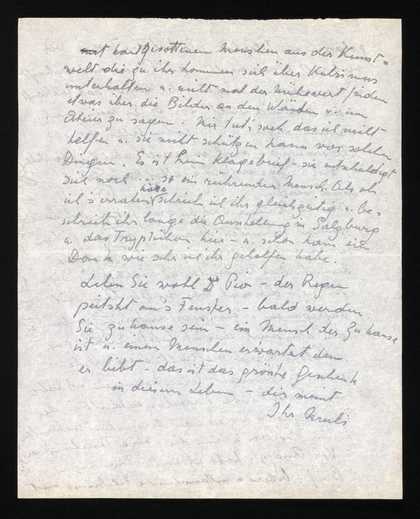 mit hartgesottenen Menschen aus der Kunst-
welt die zu ihr kommen sich über
unterhalten u. nicht mal der Mühe wert finden
etwas über die Bilder an den Wänden u. im
Atelier zu sagen. Mir tut's weh, dass ich nicht
helfen u. sie nicht schützen kann vor solchen
Dingen. Es ist kein Klagebrief - sie entschuldigt
sich noch - so ein rührender Mensch. Als ob
ich's erraten hätte schrieb ich ihr gleichzeitig u. be-
schrieb ihr lange die Ausstellung in Salzburg
u. das Tryptichon hier - u. schon kam ein
Dank wie sehr ich ihr geholfen habe.
Leben Sie wohl Dr Pio - der Regen
peitscht an's Fenster - bald werden
Sie zuhause sein - ein Mensch der zuhause
ist u. einen Menschen erwartet den
er liebt - das ist das grösste Geschenk
in diesem Leben - dies meint
Ihr